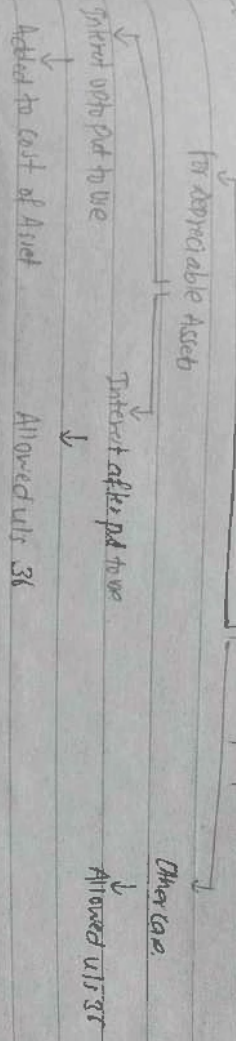 For depreciable Assets
Other Case.
Interest upto put to use
Interest after put to use
Allowed u/s 36
Added to cost of Asset
Allowed u/s 36